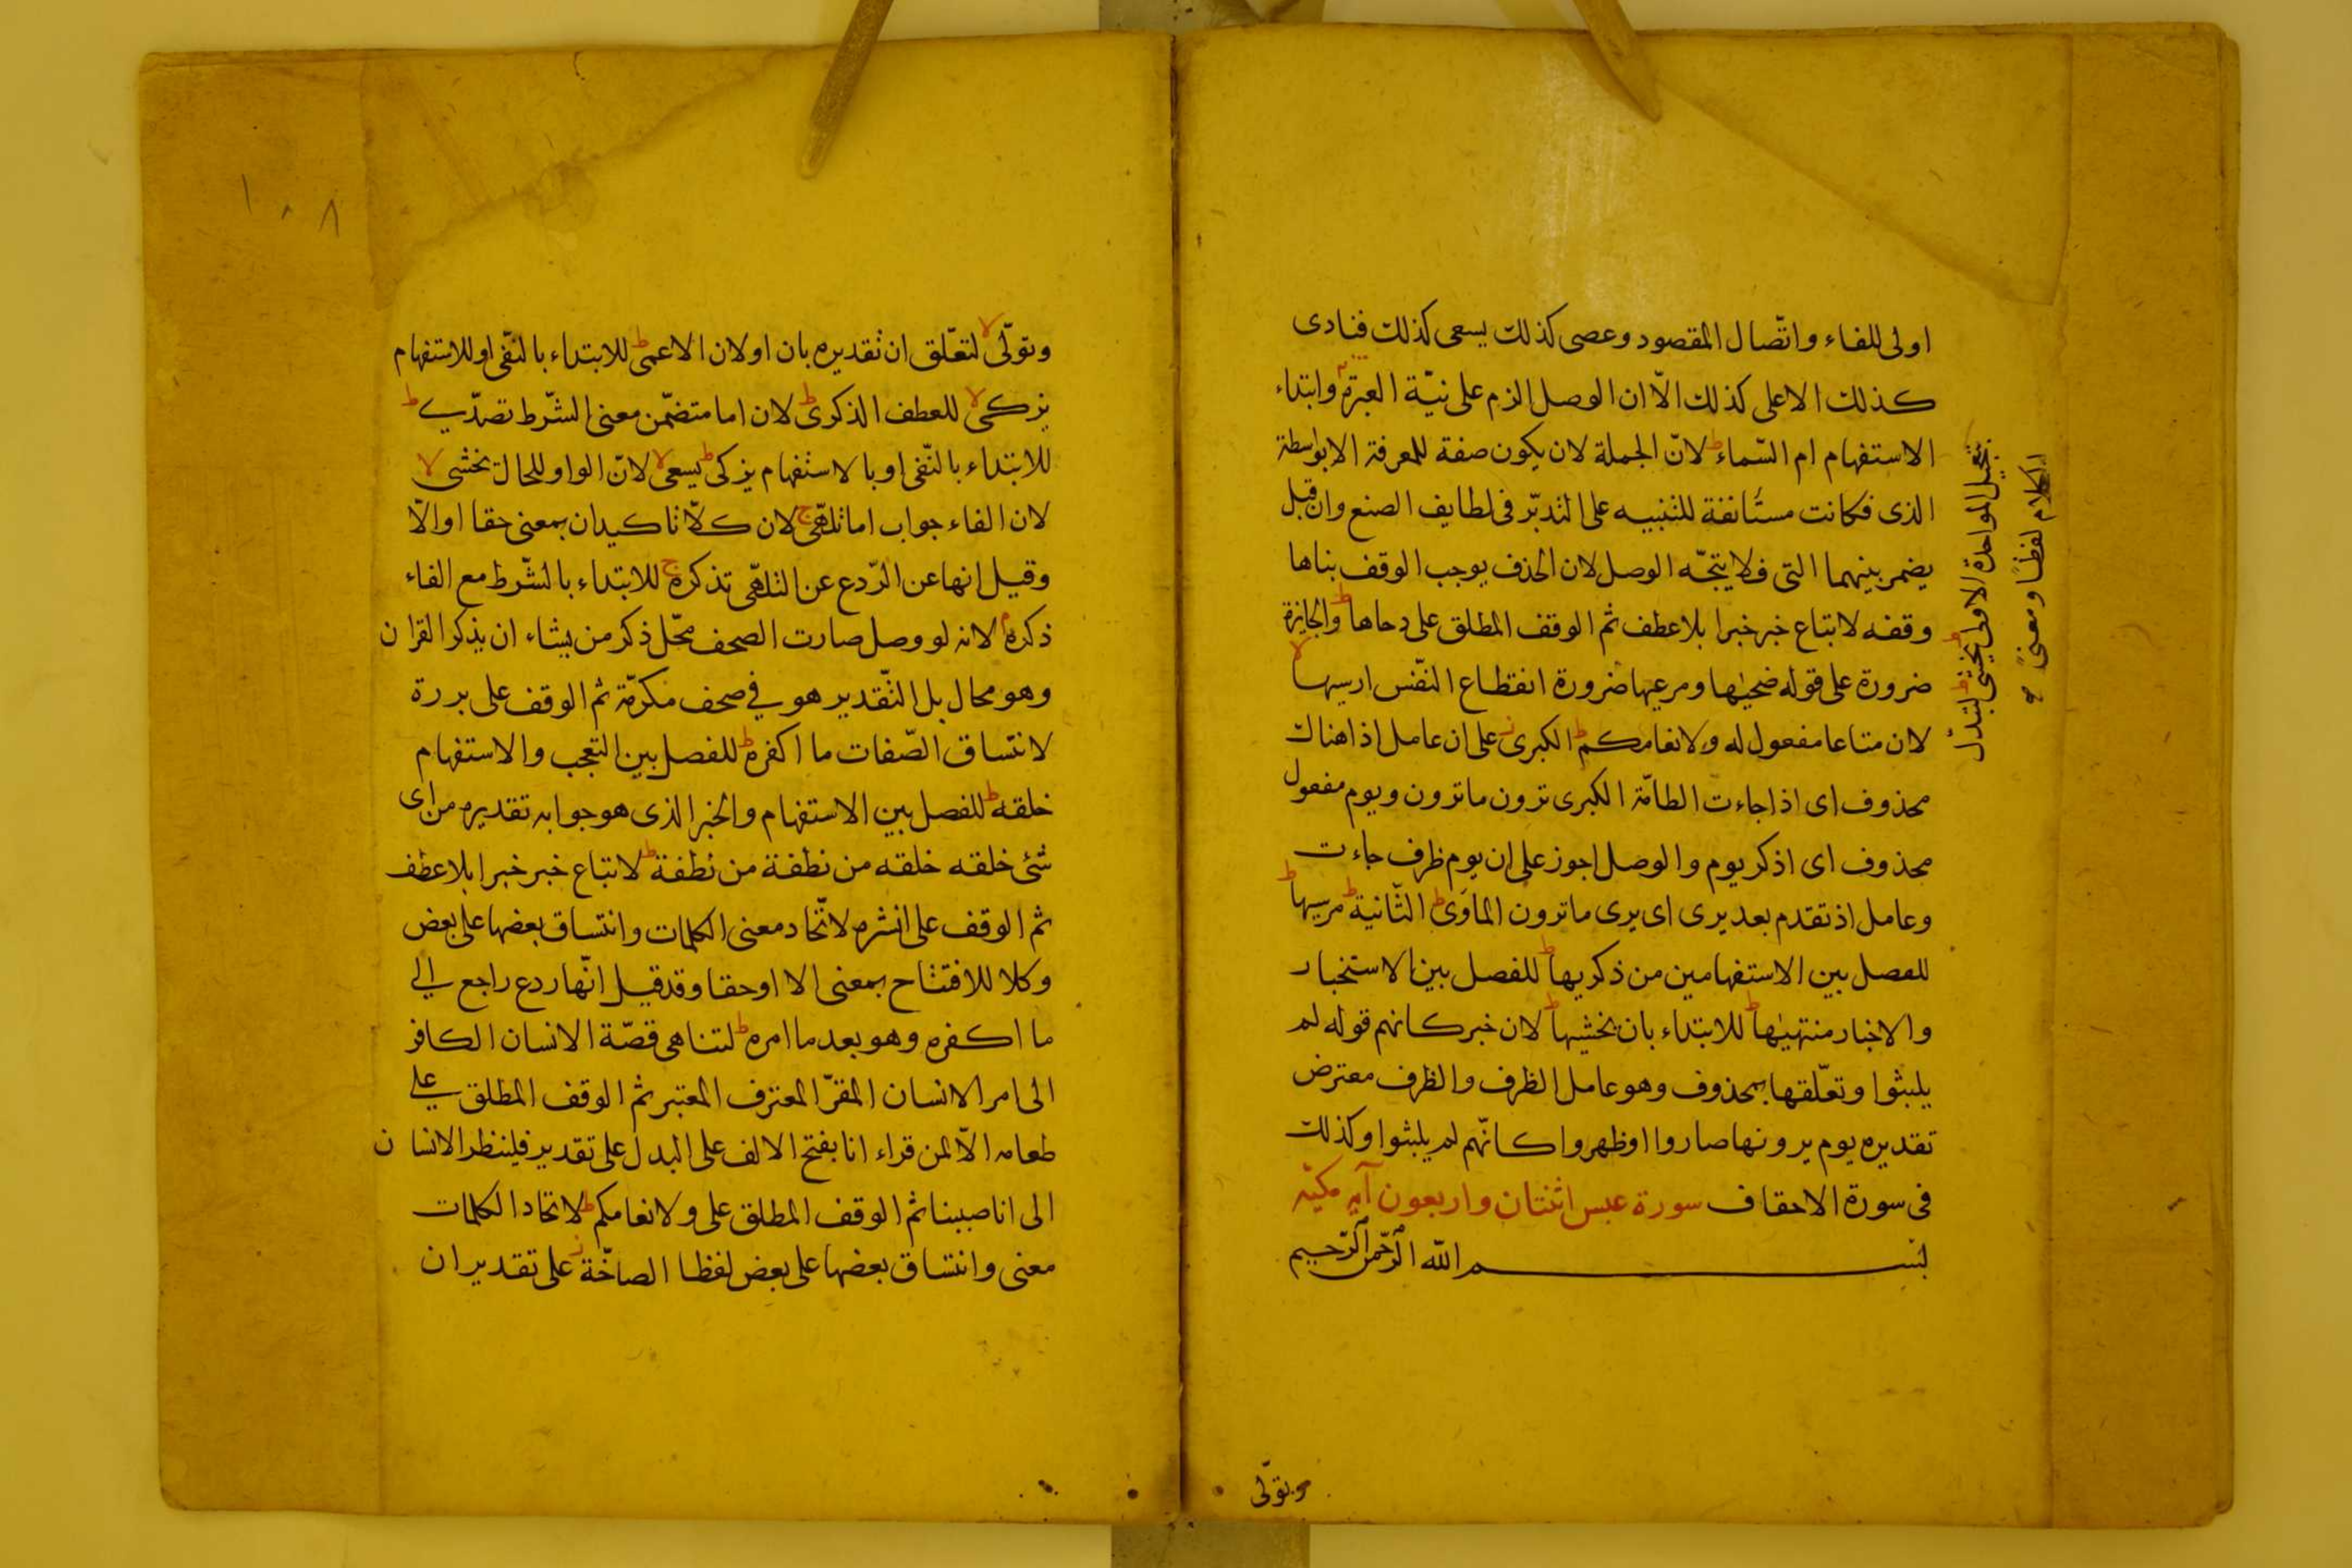 اولى للفاء واتّصال المقصود وعصى كذلك يسعى كذلك فنادى
كذلك الاعلى كذلك الّا ان الوصل الزم على نيّة العبرة وابتداء
الاستفهام ام السّماء ط لانّ الجملة لان يكون صفة للمعرفة الابواسطة
الذى فكانت مستأنفة للتنبيه على التدبّر فى لطايف الصنع وان قيل
يضمر بينهما التى فلا يتجّه الوصل لان الحذف يوجب الوقف بناها
وقفه لاتباع خبر خبرا بلا عطف ثم الوقف المطلق على دحاها ط والجايزة
ضرورة على قوله ضحيها ومرعيها ضرورة انقطاع النّفس ارسيها لا
لان متاعا مفعول له ولانعامكم ط الكبرى ز على ان عامل اذا هناك
محذوف اى اذا جاءت الطامّة الكبرى ترون ما ترون ويوم مفعول
محذوف اى اذكر يوم والوصل اجوز على ان يوم ظرف جاءت
وعامل اذ تقدم بعد يرى اى يرى ما ترون المأوى ط الثّانية ط مرسيها ط
للفصل بين الاستفهامين من ذكريها ط للفصل بين الاستخبار
والاخبار منتهيها ط للابتداء بان يخشيها ط لان خبر كانهم قوله لم
يلبثوا وتعلّقها بمحذوف وهو عامل الظرف والظرف معترض
تقديره يوم يرونها صاروا او ظهروا كانّهم لم يلبثوا وكذلك
فى سورة الاحقاف سورة عبس اثنتان واربعون آية مكيّة
بسم الله الرّحمن الرّحيم
وتولّى
الاولى يخشى ط لتبدّل
الكلام لفظًا ومعنىً
١٠٨
وتولّى لا لتعلّق ان تقديره بان اولان الاعمى ط للابتداء بالنّفى او للاستفهام
يزكى لا للعطف الذكرى ط لان اما متضمّن معنى الشّرط تصدّى ط
للابتداء بالنّفى او بالاستفهام يزكى ط يسعى لا لانّ الواو للحال يخشى لا
لان الفاء جواب اما تلهّى ج لان كلّا تاكيدان بمعنى حقا اوالّا
وقيل انها عن الرّدع عن التلهّى تذكرة ج للابتداء بالشّرط مع الفاء
ذكره م لانه لو وصل صارت الصحف محّل ذكر من يشاء ان يذكر القران
وهو محال بل التّقدير هو في صحف مكرّمة ثم الوقف على بررة
لانتساق الصّفات ما اكفره ط للفصل بين التعجب والاستفهام
خلقه ط للفصل بين الاستفهام والخبر الذى هو جوابه تقديره من اى
شئ خلقه خلقه من نطفة من نطفة ط لاتباع خبر خبرا بلا عطف
ثم الوقف على انشره لاتّحاد معنى الكلمات وانتساق بعضها على بعض
وكلا للافتتاح بمعنى الا او حقا وقد قيل انّها ردع راجع الى
ما اكفره وهو بعد ما امره ط لتناهى قصّة الانسان الكافر
الى امر الانسان المقرّ المعترف المعتبر ثم الوقف المطلق على
طعامه الّا لمن قراء انا بفتح الالف على البدل على تقدير فلينظر الانسان
الى انا صببنا ثم الوقف المطلق على ولانعامكم ط لاتحاد الكلمات
معنى وانتساق بعضها على بعض لفظا الصاخّة ز على تقدير ان